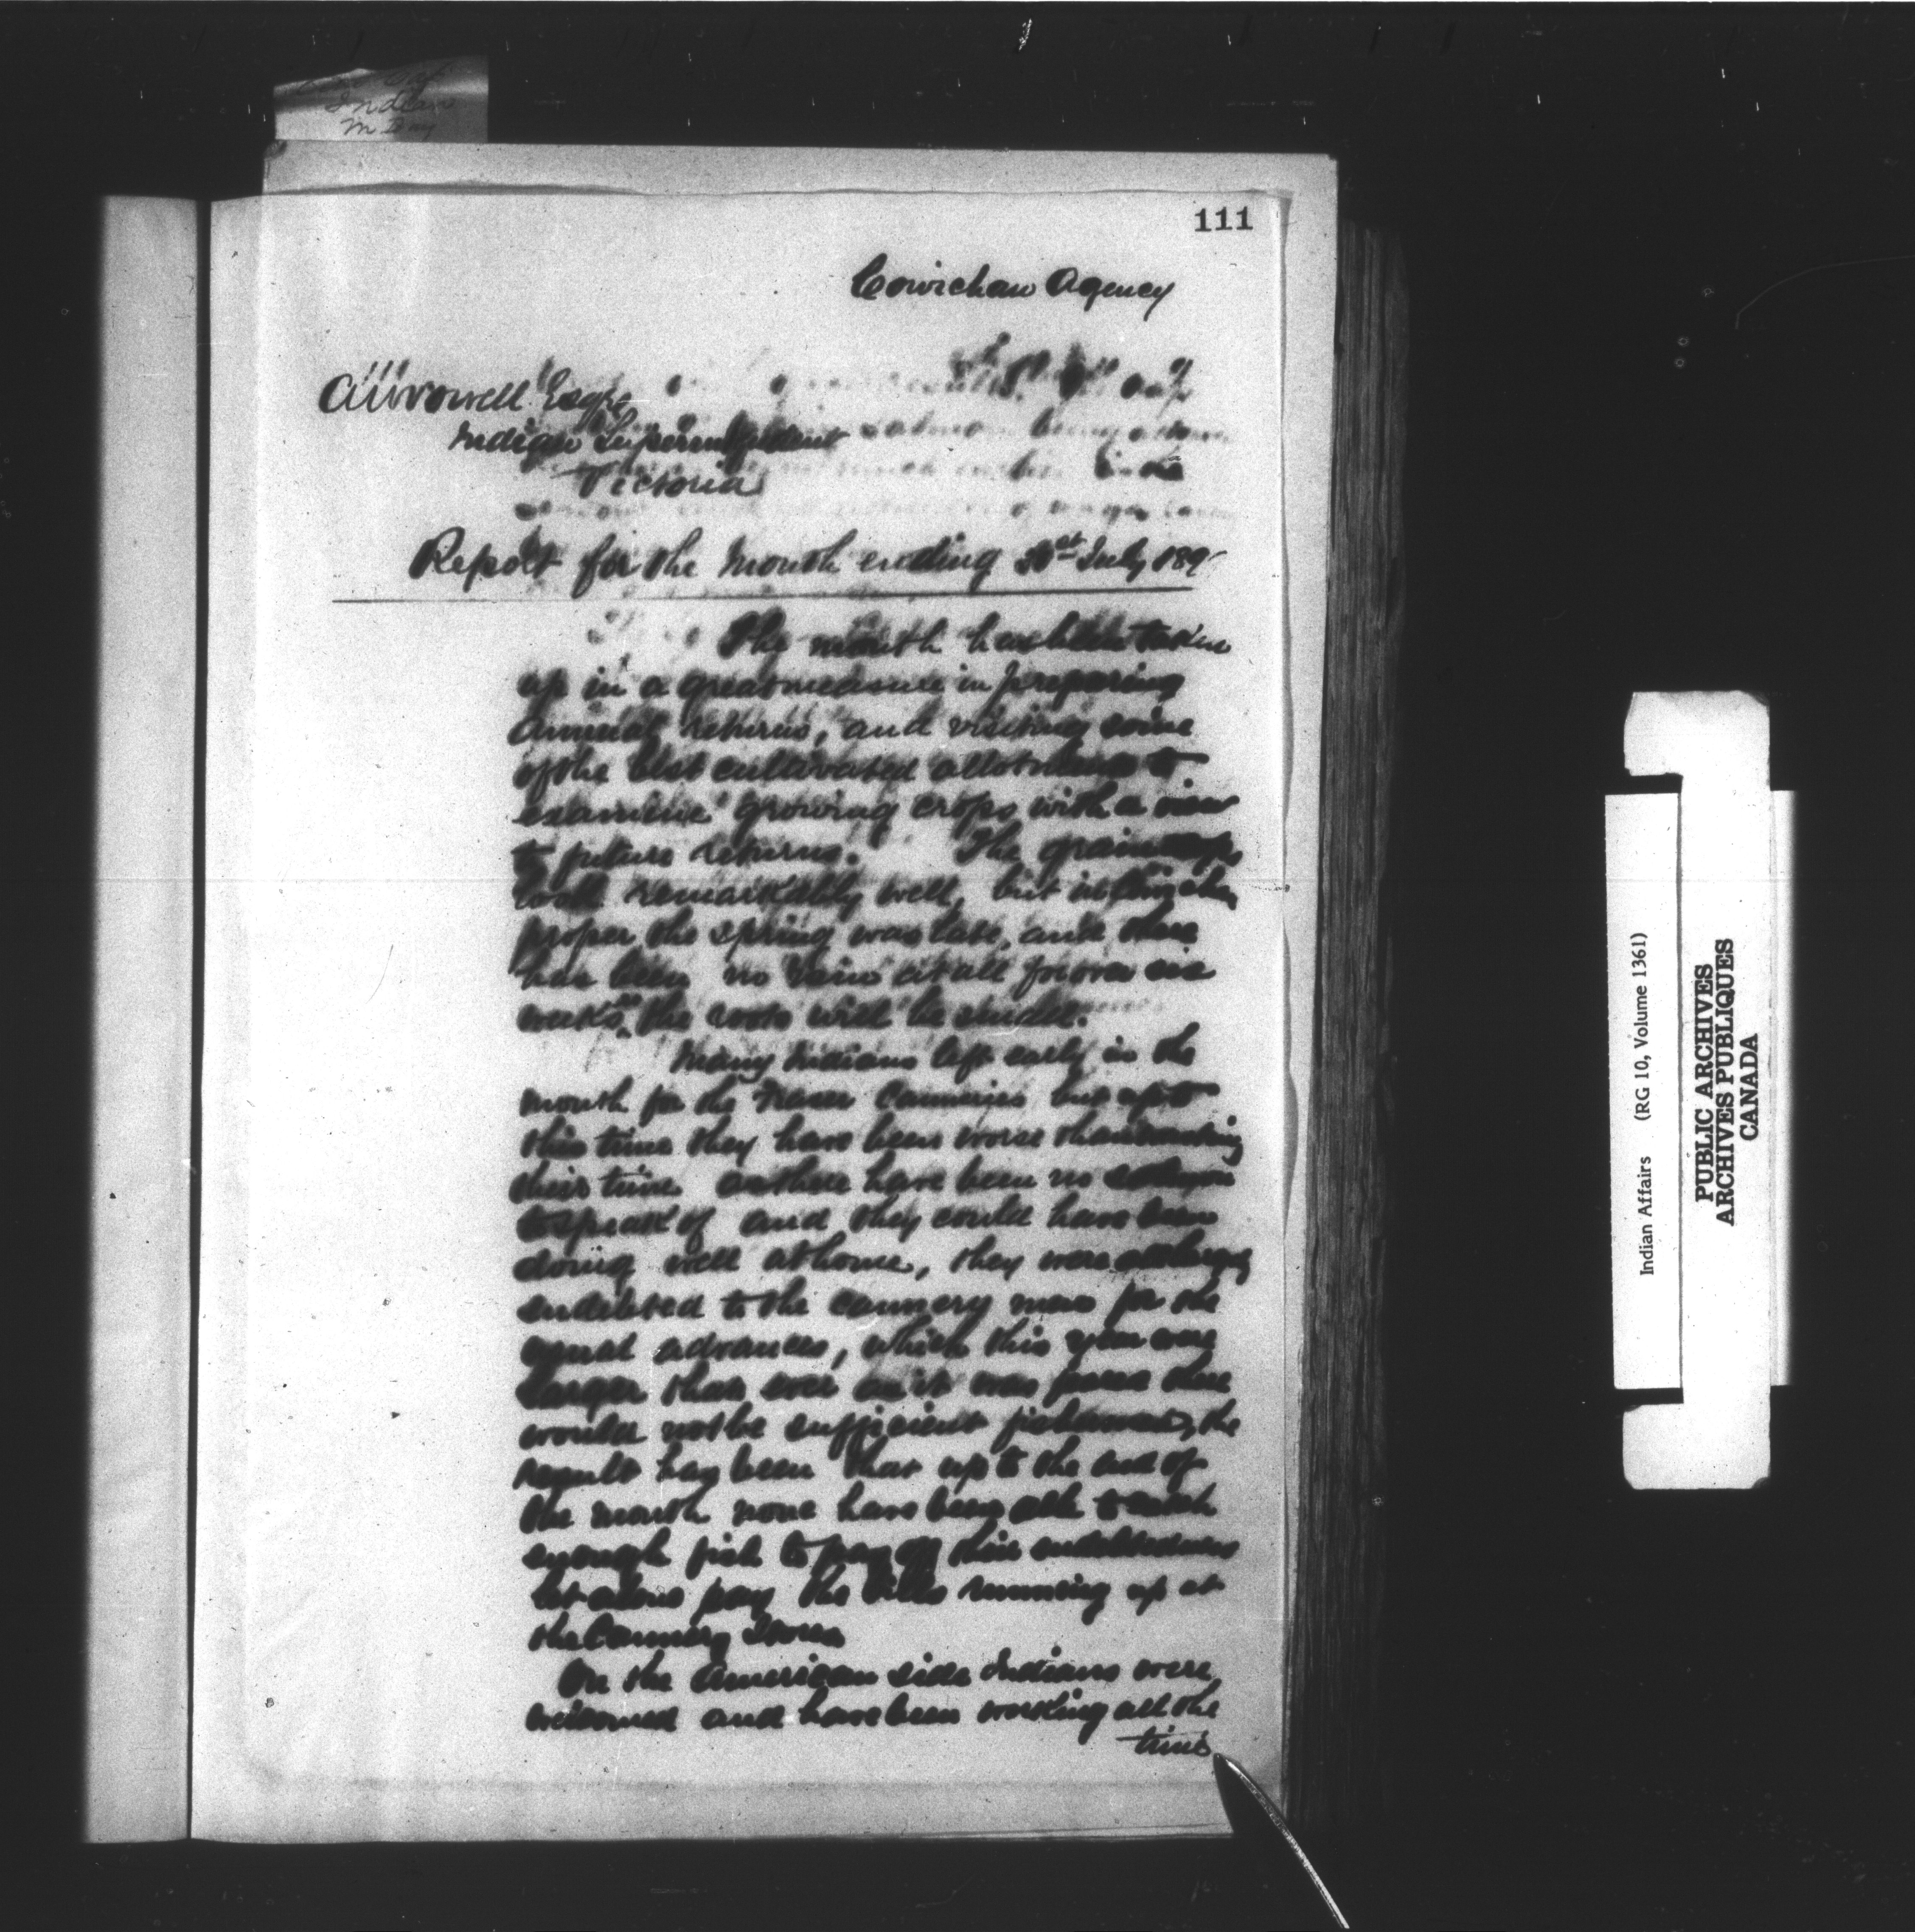 Indian
111
Cowichan Agency
A W Vowell Esqre
Indian Superintendent
Victoria
Report for the Month ending 31st July 189
The month has been taken
up in a great measure in preparing
annual returns, and visiting some
of the best cultivated allotments to
examine growing crops with a view
to future returns. The grain crops
look remarkably well, but in
proper the spring was late, and there
has been no rain at all for over six
weeks the roots will be smaller.
Many Indians left early in the
month for the Fraser Canneries but up to
this time they have been worse than wasting
their time as there have been no salmon
to speak of and they could have been
doing well at home, they were
indebted to the cannery men for the
usual advances, which this year were
larger than ever as it was feared there
would not be sufficient fishermen, the
result has been that up to the end of
the month none have been able to catch
enough fish to pay off their indebtedness
let alone pay the bills running up at
the Cannery Stores
On the American side Indians were
welcomed and have been working all the
time
Indian Affairs (RG 10, Volume 1361)
PUBLIC ARCHIVES
ARCHIVES PUBLIQUES
CANADA